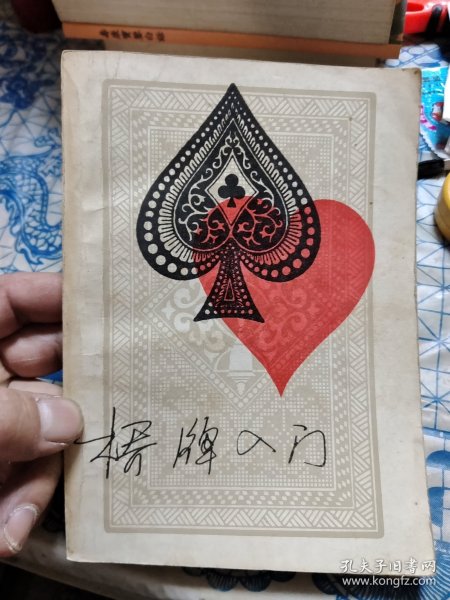 桥牌入门
孔夫子旧书网
www.kongfz.com